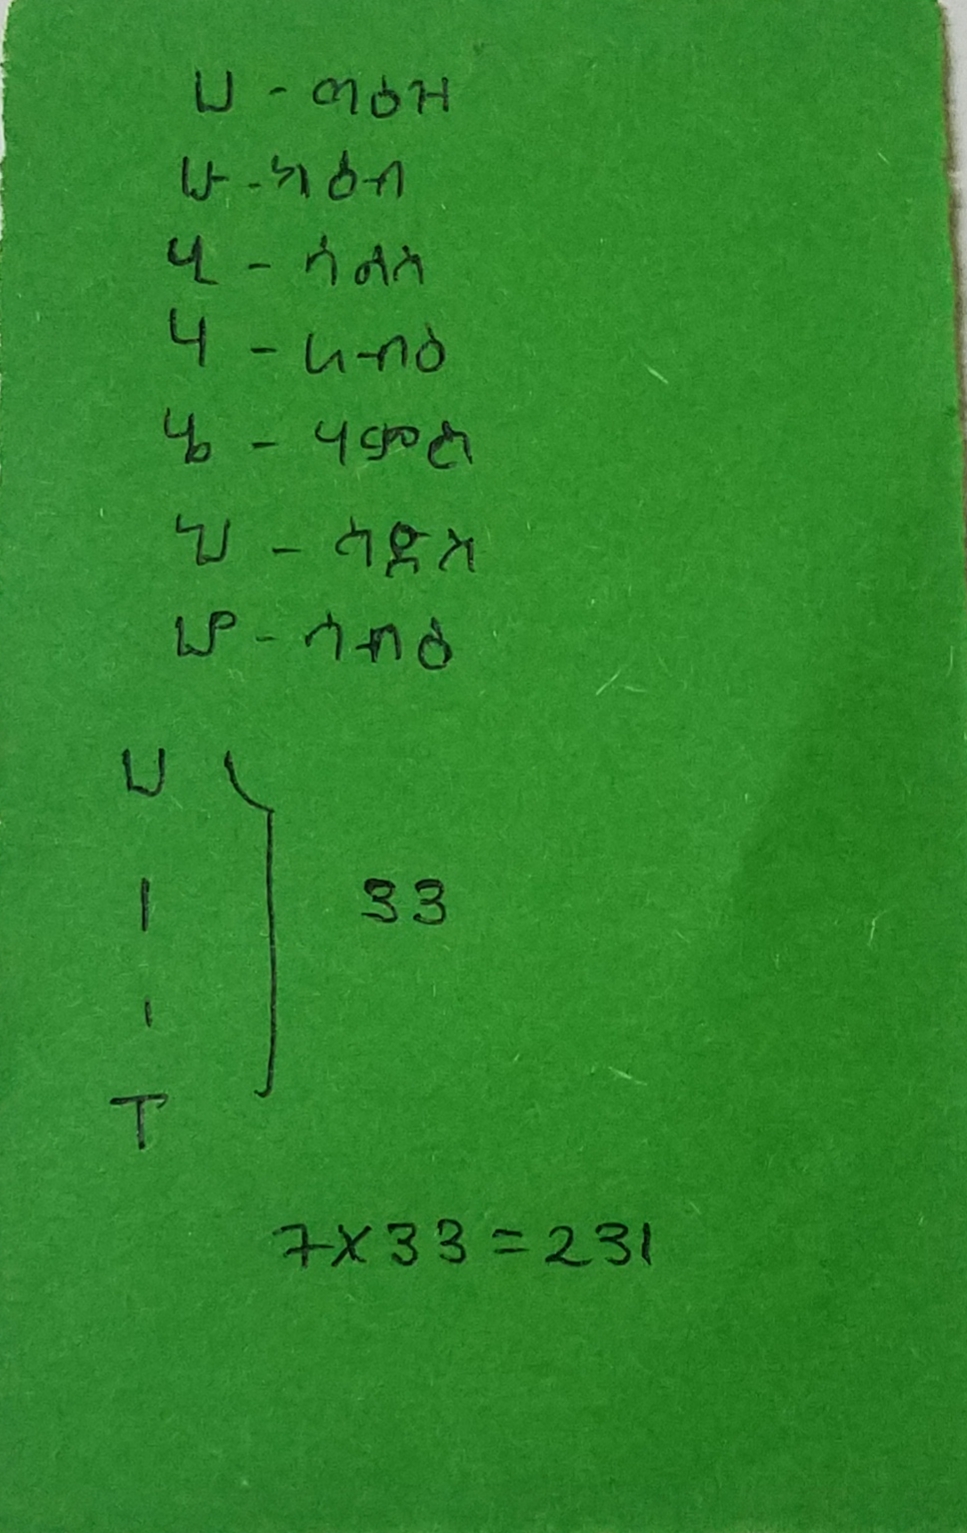 ሀ - ግዕዝ
ሁ - ካዕብ
ሂ - ሳልስ
ሃ - ራብዕ
ሄ - ሃምስ
ህ - ሳድስ
ሆ - ሳብዕ
ሀ
|
|
ፐ
33
7x33=231